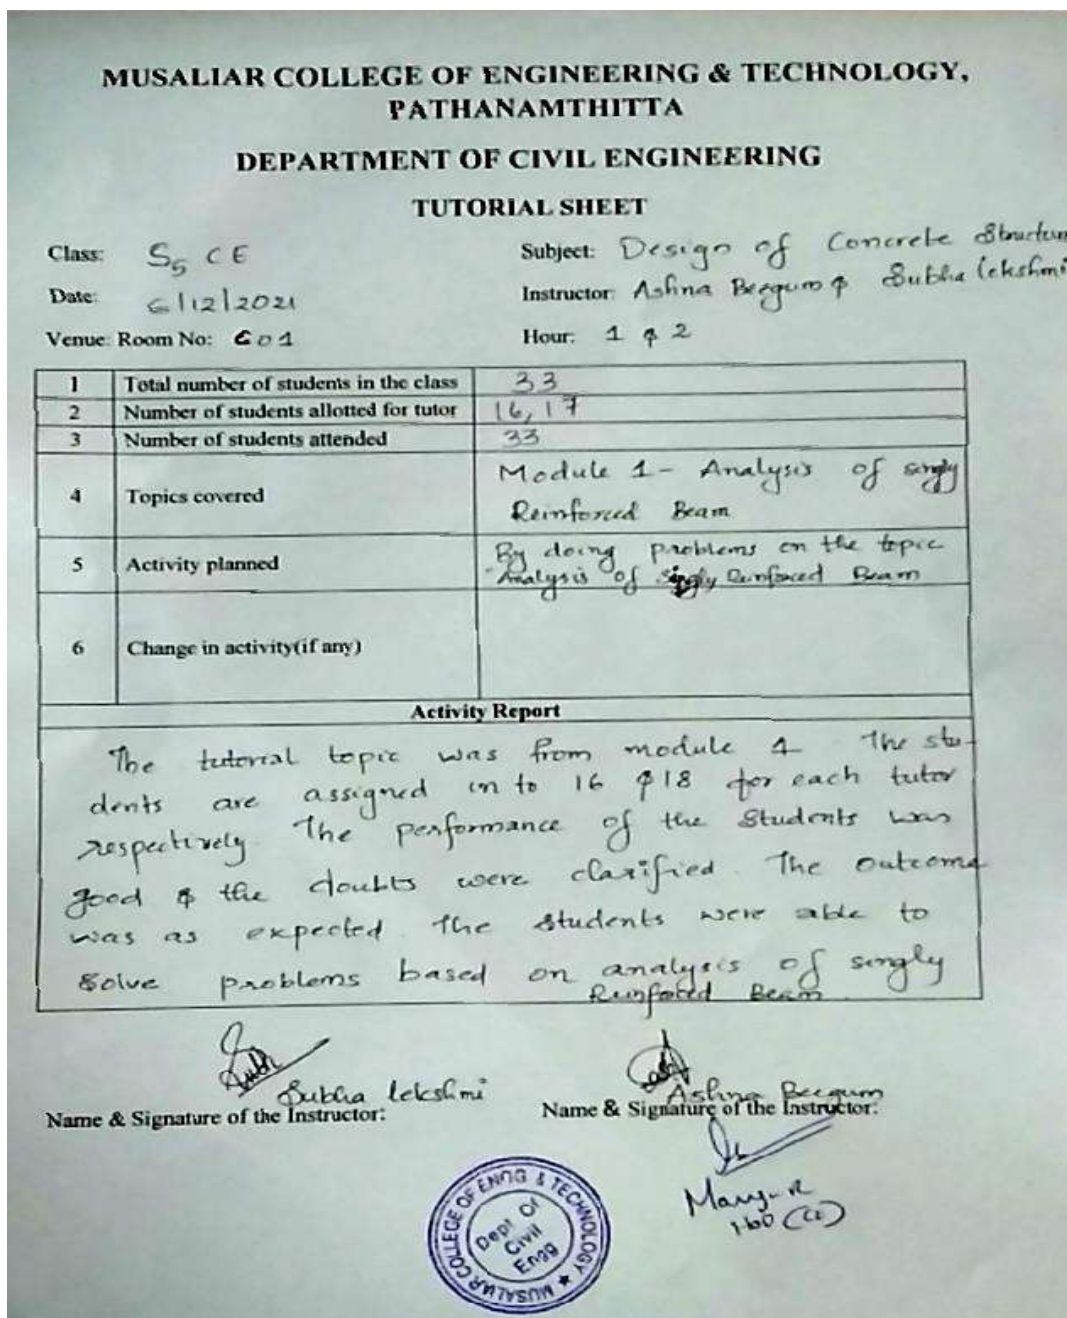 MUSALIAR COLLEGE OF ENGINEERING & TECHNOLOGY,
PATHANAMTHITTA
DEPARTMENT OF CIVIL ENGINEERING
TUTORIAL SHEET
Class: S5 CE
Subject: Design of Concrete Structure
Date: 6/12/2021
Instructor: Ashna Beegum & Subha lekshmi
Venue: Room No: 601
Hour: 1 & 2
1 Total number of students in the class 33
2 Number of students allotted for tutor 16, 17
3 Number of students attended 33
4 Topics covered Module 1 - Analysis of singly
Reinforced Beam
5 Activity planned By doing problems on the topic
Analysis of singly Reinforced Beam
6 Change in activity(if any)
Activity Report
The tutorial topic was from module 1 The stu-
dents are assigned in to 16 & 18 for each tutor
respectively. The performance of the Students was
good & the doubts were clarified. The outcome
was as expected. The students were able to
solve problems based on analysis of singly
Reinforced Beam.
Subha lekshmi
Name & Signature of the Instructor:
Ashna Beegum
Name & Signature of the Instructor:
MUSALIAR COLLEGE OF ENGG & TECHNOLOGY
Dept Of
Civil
Engg